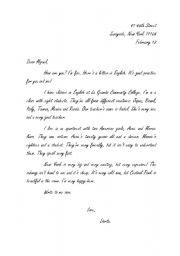 41-46th Street
Sunnyside, New York 11104
February 12
Dear Miguel,
How are you? I'm fine. Here's a letter in English. It's good practice
for you and me!
I have classes in English at La Guardia Community College. I'm in a
class with eight students. They're all from different countries: Japan, Brazil,
Italy, Taiwan, Mexico and Russia. Our teacher's name is Charles. She's very nice and
a very good teacher.
I live in an apartment with two American girls, Anna and Marie
Kane. They are sisters. Anna's twenty years old and a dancer. Marie's
eighteen and a student. They're very friendly, but it isn't easy to understand
them. They speak very fast.
New York is very big and very exciting, but very expensive! The
subway isn't hard to use and it's cheap. It's very cold now, but Central Park is
beautiful in the snow. I'm very happy here.
Write to me soon.
Love,